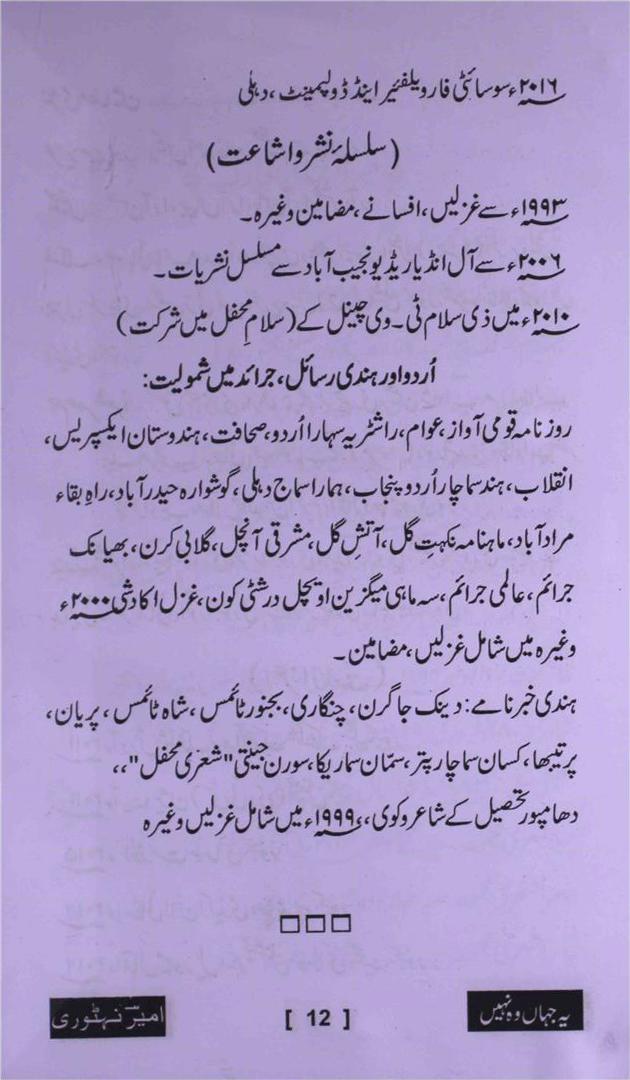 ۲۰۱۶ء سوسائٹی فار ویلفئیر اینڈ ڈولپمینٹ، دہلی
(سلسلۂ نشر و اشاعت)
۱۹۹۳ء سے غزلیں، افسانے، مضامین وغیرہ۔
۲۰۰۶ء سے آل انڈیا ریڈیو نجیب آباد سے مسلسل نشریات۔
۲۰۱۰ء میں ذی سلام ٹی۔وی چینل کے (سلامِ محفل میں شرکت)
اُردو اور ہندی رسائل، جرائد میں شمولیت:
روزنامہ قومی آواز، عوام، راشٹریہ سہارا اُردو، صحافت، ہندوستان ایکسپریس،
انقلاب، ہند سماچار اُردو پنجاب، ہمارا سماج دہلی، گوشوارہ حیدرآباد، راہِ بقاء
مرادآباد، ماہنامہ نکہتِ گل، آتشِ گل، مشرقی آنچل، گلابی کرن، بھیانک
جرائم، عالمی جرائم، سہ ماہی میگزین اویچل درشٹی کون، غزل اکادشی ۲۰۰۰ء
وغیرہ میں شامل غزلیں، مضامین۔
ہندی خبر نامے: دینک جاگرن، چنگاری، بجنور ٹائمس، شاہ ٹائمس، پریان،
پرتیبھا، کسان سماچار پتر، سمّان سماریکا، سورن جینتی "شعری محفل"،،
دھامپور تحصیل کے شاعر و کوی،، ۱۹۹۹ء میں شامل غزلیں وغیرہ
□□□
یہ جہاں وہ نہیں [ 12 ] امیرؔ نہٹوری